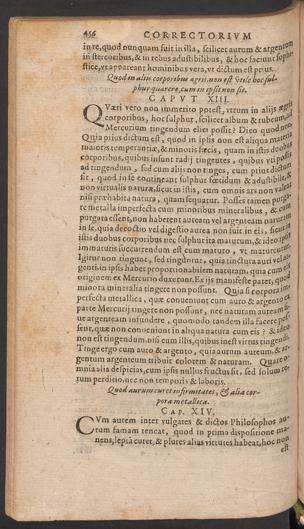 456 CORRECTORIVM
in re, quod nunquam fuit in illa, scilicet aurum & argentum
in stercoribus, & in rebus adustibilibus, & hoc faciunt sophi-
stice, vt appareant hominibus vera, vt dictum est prius.
Quod in aliis corporibus ægris non est vtile hoc sul-
phur quærere, cum in ipsis non sit.
CAPVT XIII.
QVæri vero non immerito potest, vtrum in aliis ægris
corporibus, hoc sulphur, scilicet album & rubeum,
Mercurium tingendum elici possit? Dico quod non
Quia prius dictum est, quod in ipsis non est aliqua
maioris temperantiæ, & minoris fæcis, quam in istis duobus
corporibus, quibus insunt radij tingentes, quibus vti
ad tingendum, sed cum aliis non tinges, cum prius dictum
sit, quod in se contineant sulphur fœtidum & adustibile, &
non virtualis naturæ, sicut in istis, cum omnis ars non valeat
nisi præhabita natura, quam sequatur. Posses tamen
re metalla imperfecta cum minoribus mineralibus, & cum
purgata essent, non haberent aurеam vel argenteam naturam
in se, quia decoctio vel digestio aurea non fuit in eis, sicut in
istis duobus corporibus nec sulphureita maturum, & ideo ipsa
immaturis succurrendum est cum maturo, vt maturentur.
Igitur non tingunt, sed tinguntur, quia tinctura auri vel ar-
genti, in ipsis habet proportionabilem naturam, quia cum eis
originem ex Mercurio duxerunt. Ex ijs manifeste patet, quod
minora mineralia tingere non possunt. Quia si corpora im-
perfecta metallica, quæ conueniunt cum auro & argento ex
parte Mercurij tingere non possunt, nec naturam auream
ue argenteam infundere, quomodo tandem illa facere possent
sent, quæ non conueniunt in aliqua natura cum eis? & ideo
non est tingendum, nisi cum illis, quibus inest virtus tingendi.
Tinge ergo cum auro & argento, quia aurum aureum & ar-
gentum argenteum tribuit colorem & naturam. Quare o-
mnia alia despicias, cum ipsis nullus fructus sit, sed solum
tum perditio, nec non temporis & laboris.
Quod aurum curet infirmitates, & alia cor-
pora metallica.
CAP. XIV.
CVm autem inter vulgates & dictos Philosophos au-
rum famam teneat, quod in prima dispositione ma-
nens, lepra curet, & plures alias virtutes habeat, hoc non
est